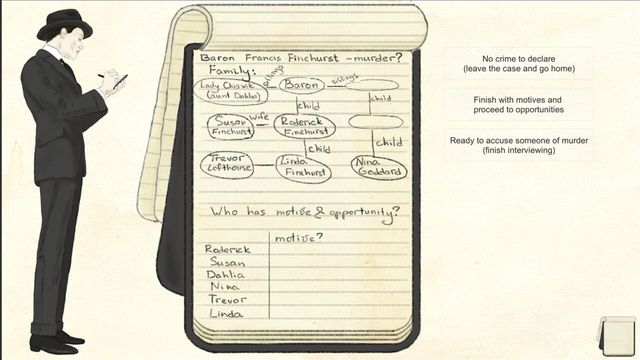 Baron Francis Finchurst - murder?
Family:
Lady Chiswik
(aunt Dahlia)
siblings
Baron
siblings
child
child
Susan
Finchurst
wife
Roderick
Finchurst
child
child
Trevor
Lofthouse
Linda
Finchurst
Nina
Goddard
Who has motive & opportunity?
motive?
Roderick
Susan
Dahlia
Nina
Trevor
Linda
No crime to declare
(leave the case and go home)
Finish with motives and
proceed to opportunities
Ready to accuse someone of murder
(finish interviewing)